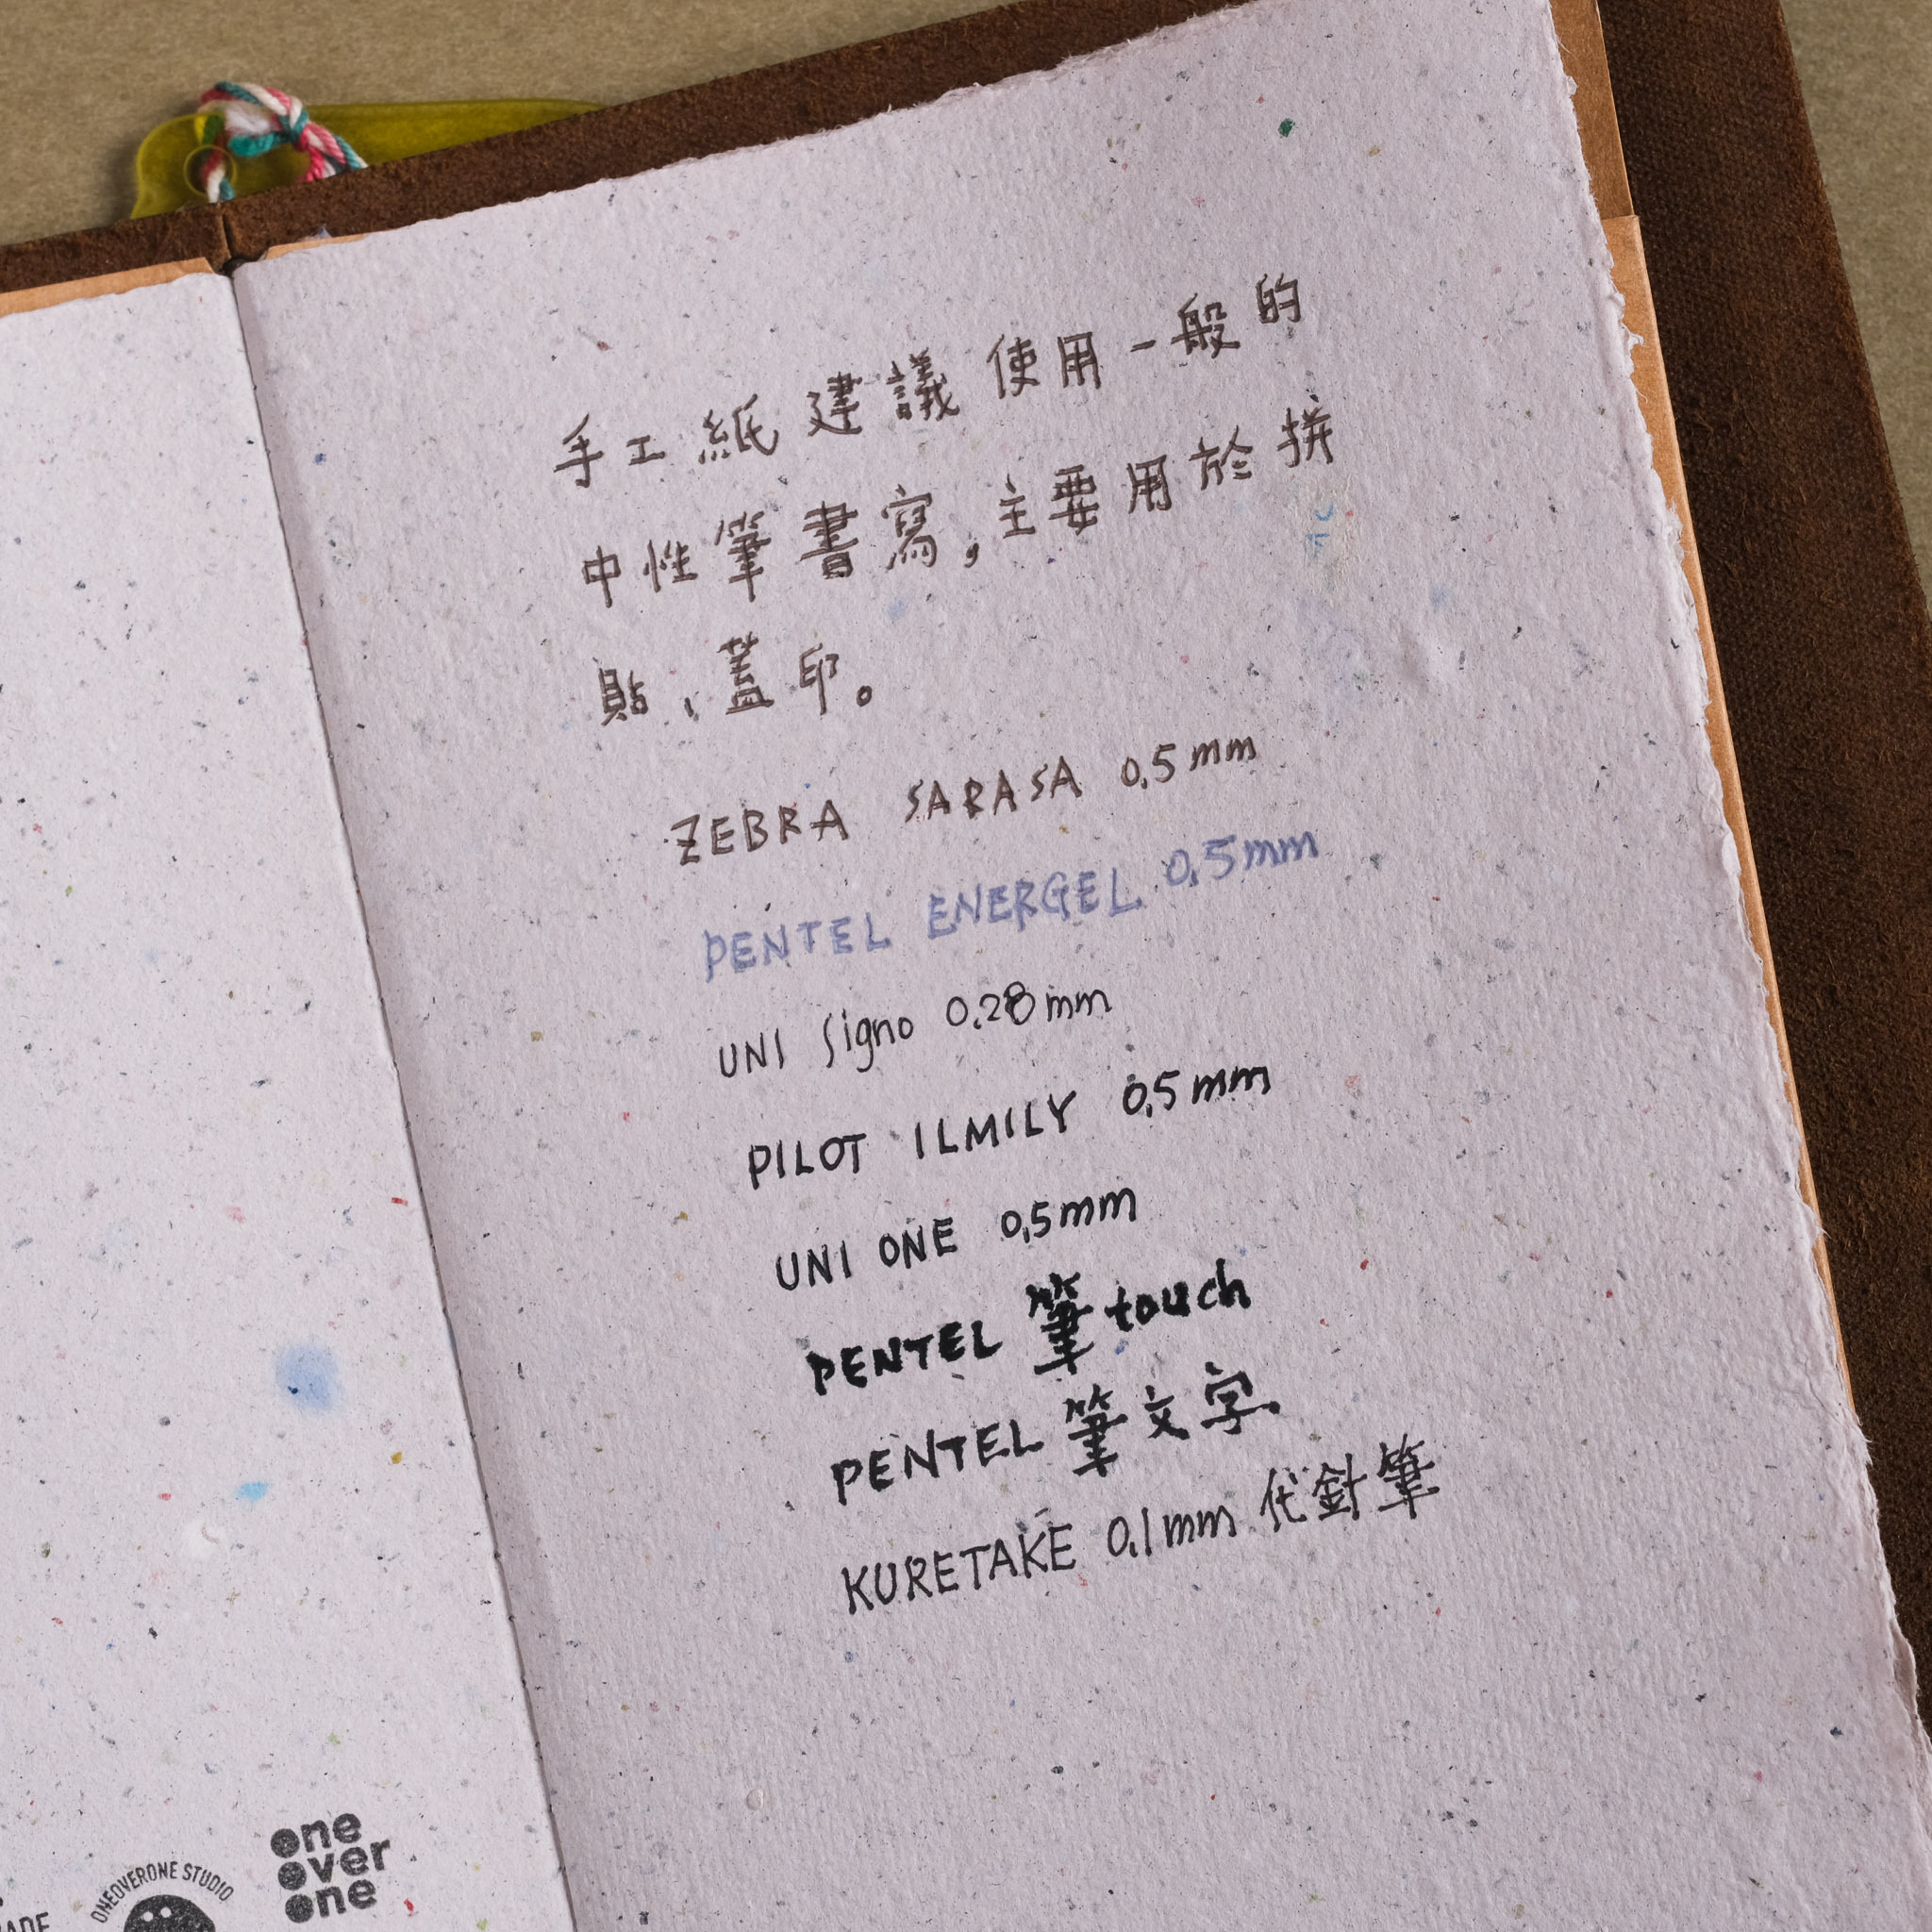 手工紙建議使用一般的
中性筆書寫，主要用於拼
貼、蓋印。
ZEBRA SARASA 0.5mm
PENTEL ENERGEL 0.5mm
UNI Signo 0.28mm
PILOT ILMILY 0.5mm
UNI ONE 0.5mm
PENTEL 筆touch
PENTEL 筆文字
KURETAKE 0.1mm 代針筆
one
over
one
ONEOVERONE STUDIO